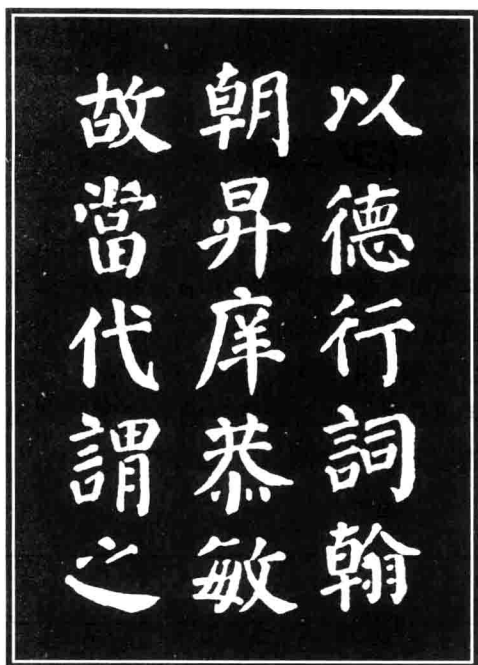 以德行詞翰
朝昇庠恭敏
故當代謂之